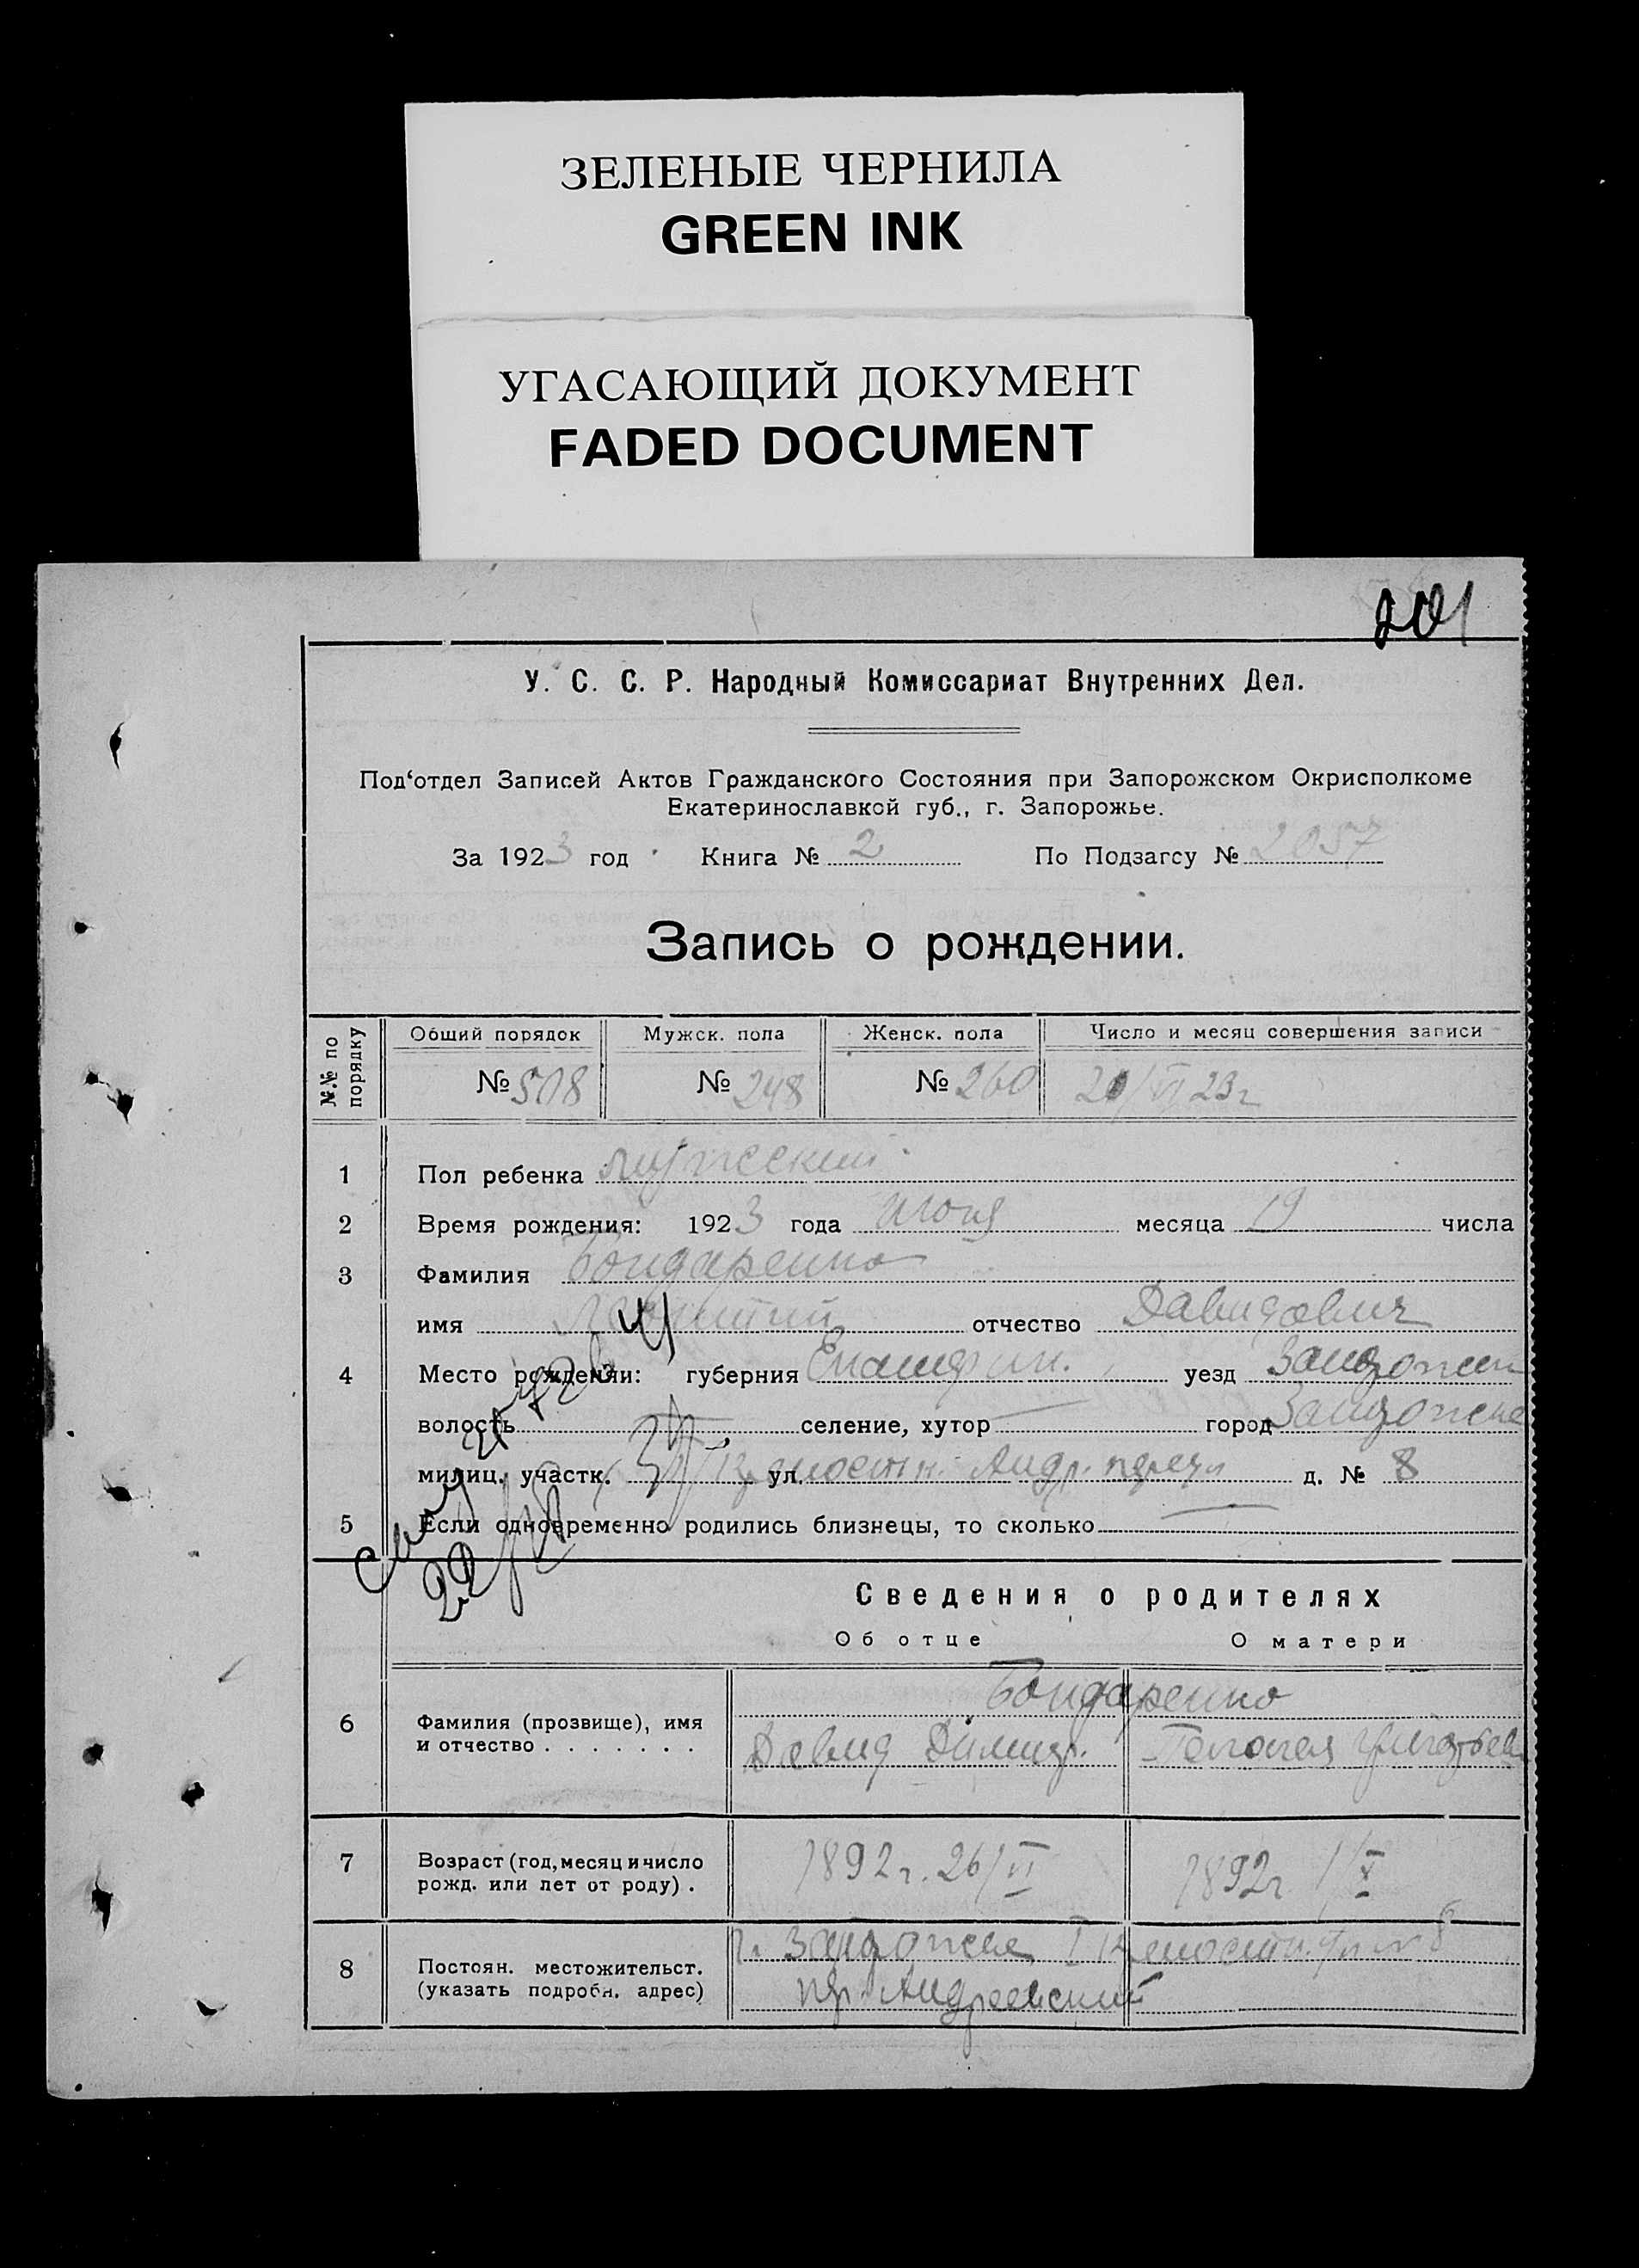 ЗЕЛЕНЫЕ ЧЕРНИЛА
GREEN INK
УГАСАЮЩИЙ ДОКУМЕНТ
FADED DOCUMENT
201
У. С. С. Р. Народный Комиссариат Внутренних Дел.
Под‘отдел Записей Актов Гражданского Состояния при Запорожском Окрисполкоме
Екатеринославкой губ., г. Запорожье.
За 1923 год Книга № 2 По Подзагсу № 2057
Запись о рождении.
№№ по порядку Общий порядок Мужск. пола Женск. пола Число и месяц совершения записи
№ 508 № 248 № 260 /VI 23г
1 Пол ребенка мужской
2 Время рождения: 1923 года июня месяца 19 числа
3 Фамилия Бондаренко
имя отчество Давидович
4 Место рождении: губерния уезд
волость селение, хутор город Запорожье
милиц. участк. ул. Андр. д. № 8
5 Если одновременно родились близнецы, то сколько
Сведения о родителях
Об отце О матери
Бондаренко
6 Фамилия (прозвище), имя
и отчество . . . . . . . Давид
7 Возраст (год, месяц и число 1892 г. 26/VI 1892 г 1/X
рожд. или лет от роду) .
8 Постоян. местожительст. г. Запорожье I
(указать подробн. адрес) пер. Андреевский